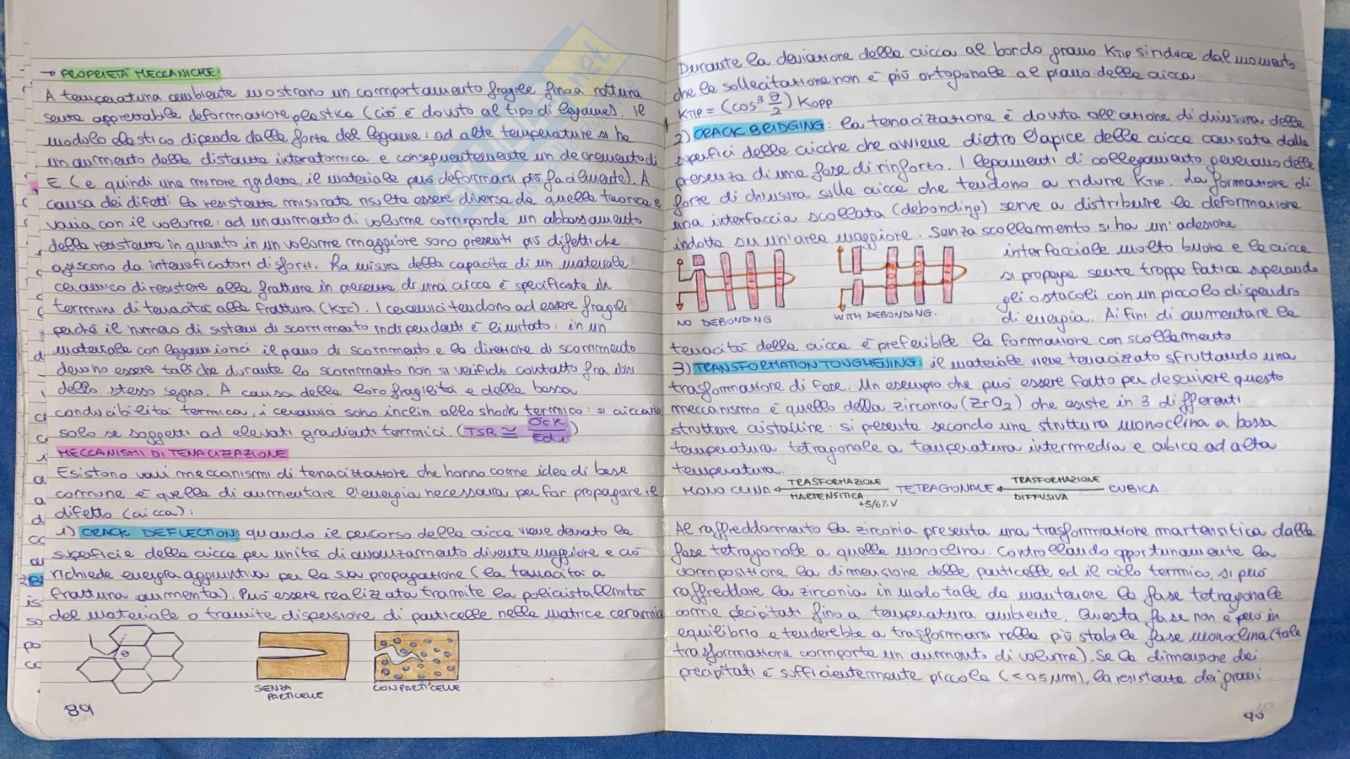 → PROPRIETÀ MECCANICHE:
A temperatura ambiente mostrano un comportamento fragile fino a rottura
senza apprezzabile deformazione plastica (ciò è dovuto al tipo di legame). Il
modulo elastico dipende dalla forza del legame: ad alte temperature si ha
un aumento della distanza interatomica e conseguentemente un decremento di
E (e quindi una minore rigidezza, il materiale può deformarsi più facilmente). A
causa dei difetti la resistenza misurata risulta essere diversa da quella teorica e
varia con il volume: ad un aumento di volume corrisponde un abbassamento
della resistenza in quanto in un volume maggiore sono presenti più difetti che
agiscono da intensificatori di sforzi. La misura della capacità di un materiale
ceramico di resistere alla frattura in presenza di una cricca è specificata in
termini di tenacità alla frattura (KIC). I ceramici tendono ad essere fragili
perché il numero di sistemi di scorrimento indipendenti è limitato: in un
materiale con legami ionici il piano di scorrimento e la direzione di scorrimento
devono essere tali che durante lo scorrimento non si verifichi contatto fra ioni
dello stesso segno. A causa della loro fragilità e della bassa
conducibilità termica, i ceramici sono inclini allo shock termico: si criccano
solo se soggetti ad elevati gradienti termici (TSR ≅ σcK / Eαl)
MECCANISMI DI TENACIZZAZIONE
Esistono vari meccanismi di tenacizzazione che hanno come idea di base
comune è quella di aumentare l'energia necessaria per far propagare il
difetto (cricca):
1) CRACK DEFLECTION: quando il percorso della cricca viene deviato la
superficie della cricca per unità di avanzamento diventa maggiore e ciò
richiede energia aggiuntiva per la sua propagazione (la tenacità a
frattura aumenta). Può essere realizzata tramite la policristallinità
del materiale o tramite dispersione di particelle nella matrice ceramica
SENZA
PARTICELLE
CON PARTICELLE
89
Durante la deviazione della cricca al bordo grano KTIP si riduce dal momento
che la sollecitazione non è più ortogonale al piano della cricca
KTIP = (cos³ θ/2) KAPP
2) CRACK BRIDGING: la tenacizzazione è dovuta all'azione di chiusura delle
superfici delle cricche che avviene dietro l'apice della cricca causata dalla
presenza di una fase di rinforzo. I legamenti di collegamento generano delle
forze di chiusura sulla cricca che tendono a ridurre KTIP. La formazione di
una interfaccia scollata (debonding) serve a distribuire la deformazione
indotta su un'area maggiore. Senza scollamento si ha un'adesione
interfacciale molto buona e la cricca
si propaga senza troppa fatica superando
gli ostacoli con un piccolo dispendio
di energia. Ai fini di aumentare la
NO DEBONDING
WITH DEBONDING.
tenacità della cricca è preferibile la formazione con scollamento
3) TRANSFORMATION TOUGHENING: il materiale viene tenacizzato sfruttando una
trasformazione di fase. Un esempio che può essere fatto per descrivere questo
meccanismo è quello della zirconia (ZrO2) che esiste in 3 differenti
strutture cristalline: si presenta secondo una struttura monoclina a bassa
temperatura, tetragonale a temperatura intermedia e cubica ad alta
temperatura.
MONOCLINA ← TRASFORMAZIONE MARTENSITICA +5/6% V TETRAGONALE ← TRASFORMAZIONE DIFFUSIVA CUBICA
Al raffreddamento la zirconia presenta una trasformazione martensitica dalla
fase tetragonale a quella monoclina. Controllando opportunamente la
composizione la dimensione delle particelle ed il ciclo termico, si può
raffreddare la zirconia in modo tale da mantenere la fase tetragonale
come precipitati fino a temperatura ambiente. Questa fase non è però in
equilibrio e tenderebbe a trasformarsi nella più stabile fase monoclina (tale
trasformazione comporta un aumento di volume). Se la dimensione dei
precipitati è sufficientemente piccola (<0,5 μm), la resistenza dei grani
90